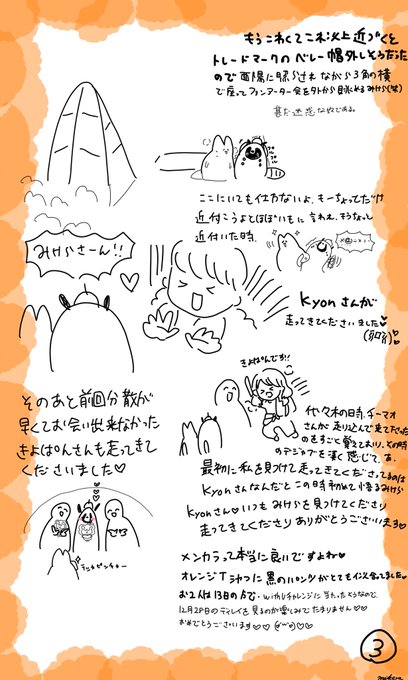 もうこわくてこれ以上近づくと
トレードマークのベレー帽外しそうだった
ので西陽に照らされながら3角の横
で座ってファンアーター会を外から眺めるみけら(笑)
甚だ迷惑な奴である。
ここにいても仕方ないよ、もーちょっとだけ
近付こうよとほぼいもに言われ、もうちょっと
近付いた時、
みけらさーん!!
Kyonさんが
走ってきてくださいました
(号泣)
きよぱんです!!
そのあと前回分散が
早くてお会い出来なかった
きよぱんさんも走ってきて
くださいました♡
代々木の時、チーマオ
さんが走り込んで来て下さった
のをすごく覚えており、その時
のデジャブを凄く感じて、あ、
最初に私を見つけて走ってきてくださってるのは
Kyonさんなんだとこの時初めて悟るみけら
Kyonさん♡いつもみけらを見つけてくださり
走ってきてくださり ありがとうございます♡
ランチピンチャー
メンカラって本当に良いですよね♥
オレンジTみつに黒のパンツがとても似合ってました♥
お2人は13日の方で、withUチャレンジに当たったようなので
12月28日のディレイを見るのが楽しみでたまりません♡♡
おめでとうございます♡♡
3
mikera